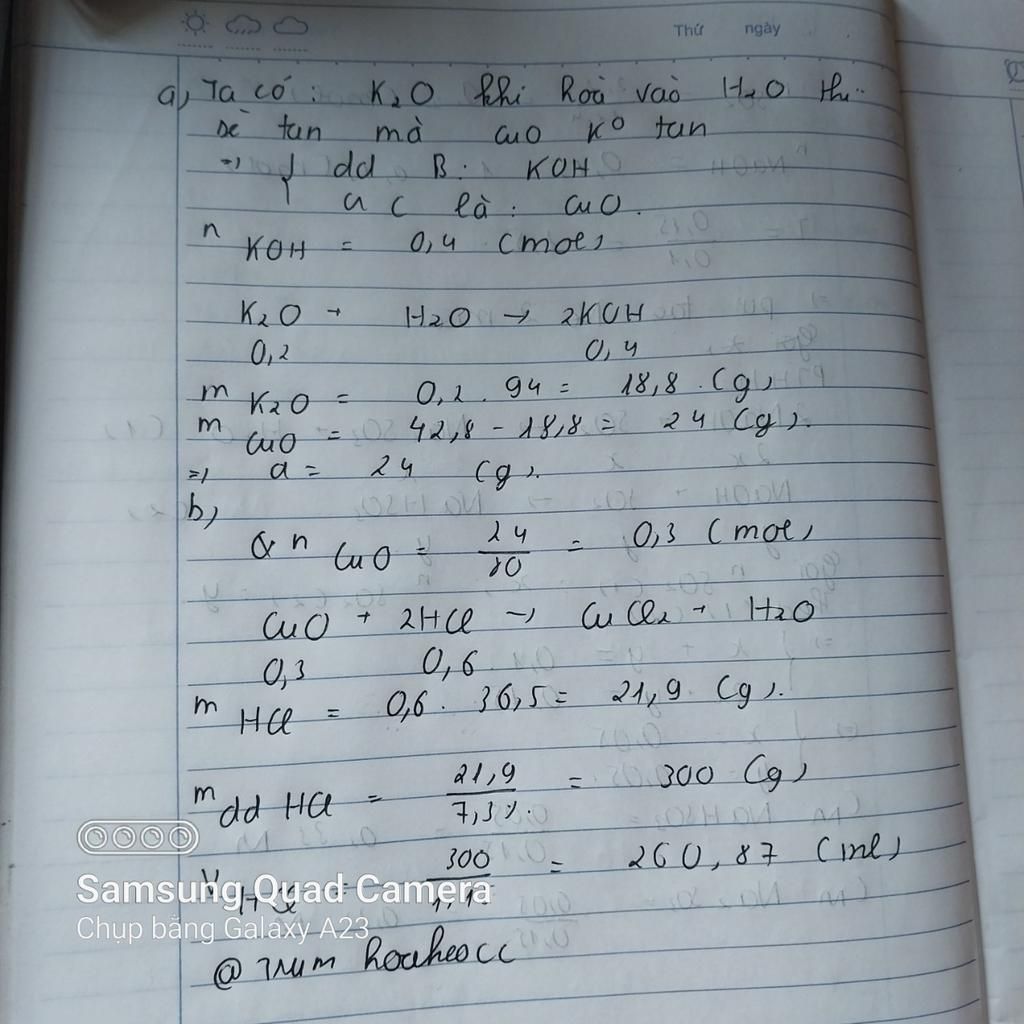 Thứ ngày
a, Ta có : K2O khi hoà vào H2O thì
sẽ tan mà CuO K0 tan
=> { dd B : KOH
a C là : CuO.
n KOH = 0,4 (mol)
K2O + H2O → 2KOH
0,2 0,4
m K2O = 0,2 . 94 = 18,8 (g)
m CuO = 42,8 - 18,8 = 24 (g).
=> a = 24 (g).
b,
n CuO = 24/80 = 0,3 (mol)
CuO + 2HCl → CuCl2 + H2O
0,3 0,6
m HCl = 0,6 . 36,5 = 21,9 (g).
m dd HCl = 21,9/7,3% = 300 (g)
300 = 260,87 (ml)
Samsung Quad Camera
Chụp bằng Galaxy A23
@ Trum hoaheocc